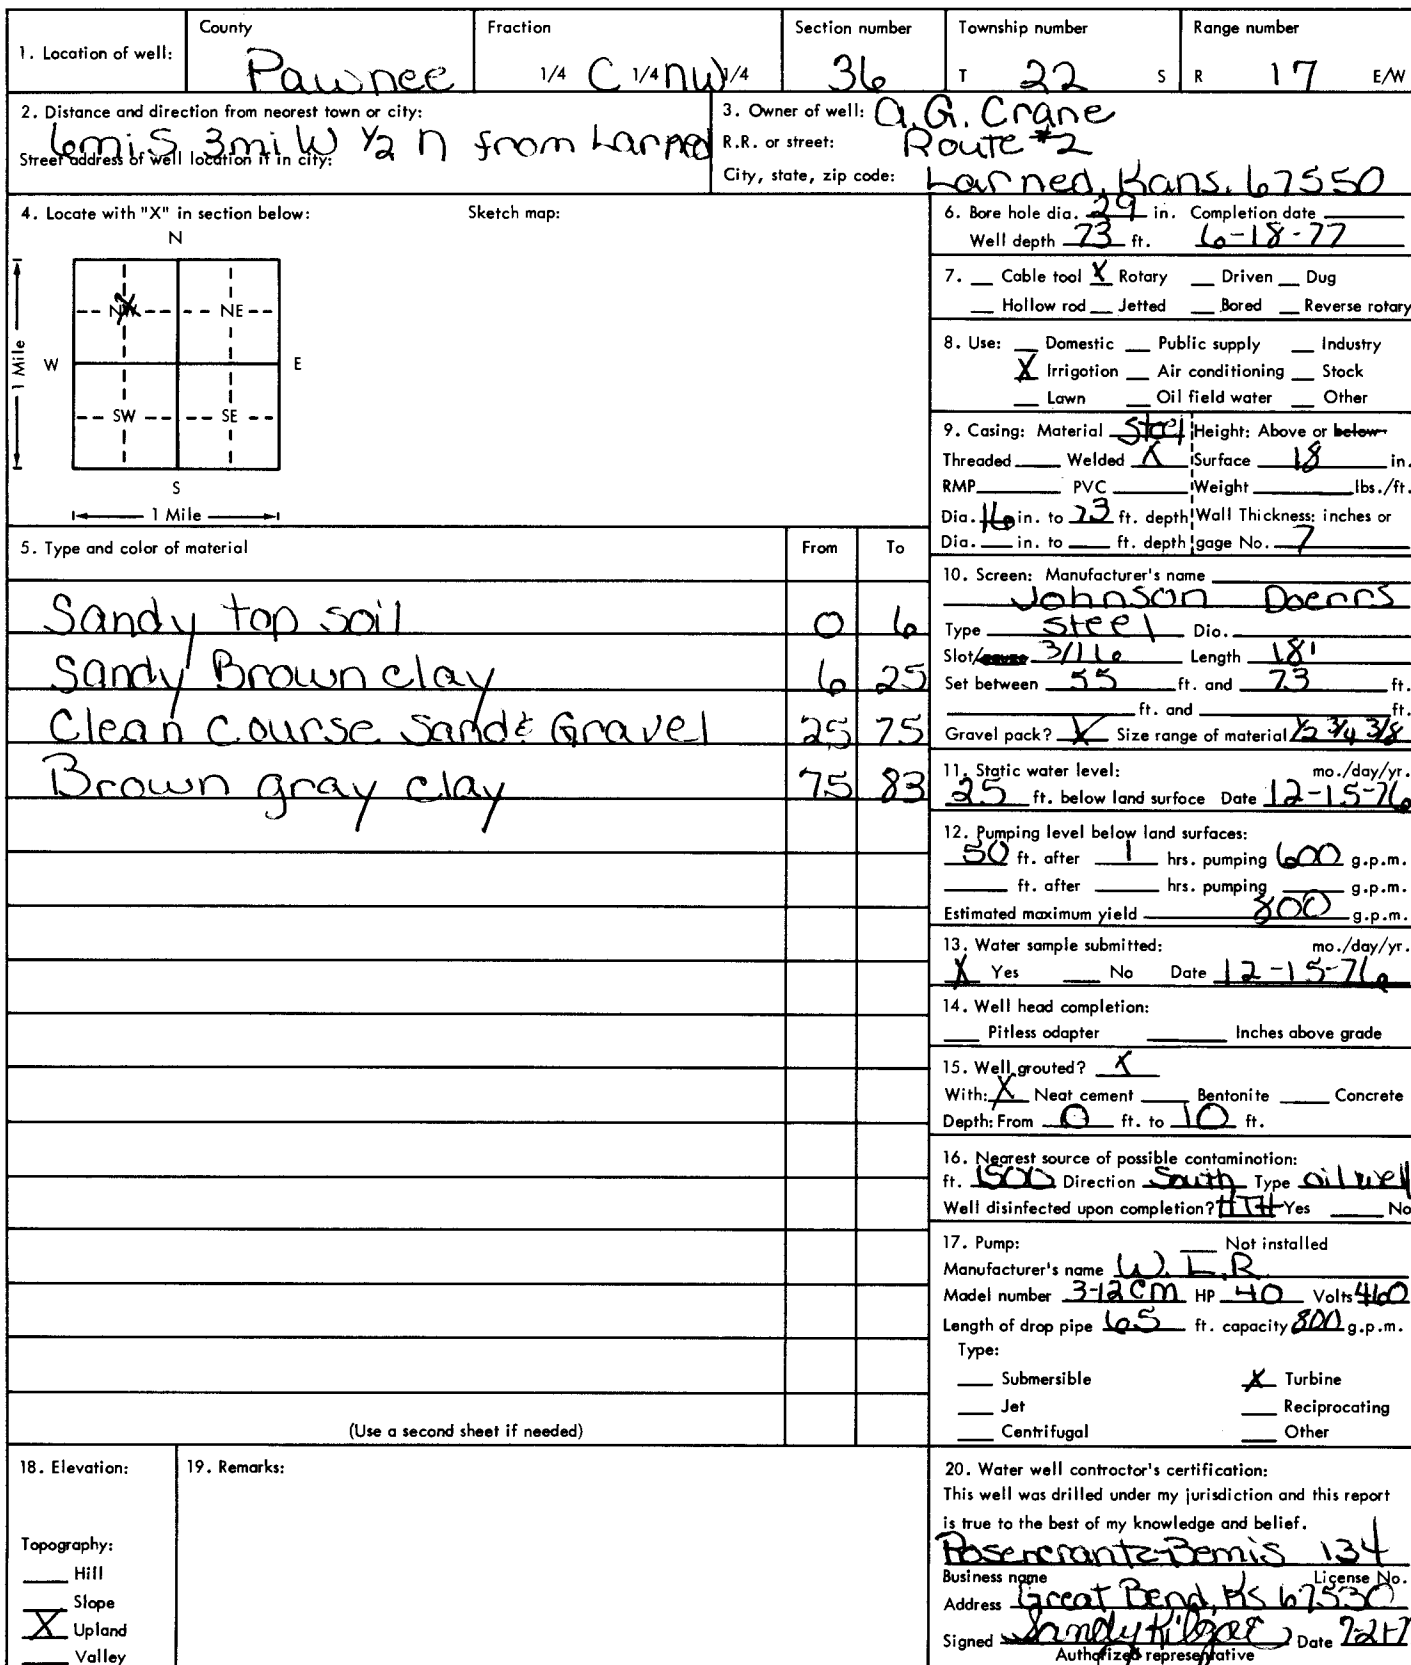 County Fraction Section number Township number Range number
1. Location of well: Pawnee 1/4 C 1/4 NW 1/4 36 T 22 S R 17 E/W
2. Distance and direction from nearest town or city:
6mi S 3mi W 1/2 N from Larned
Street address of well location if in city:
3. Owner of well: A.G. Crane
R.R. or street: Route #2
City, state, zip code: Larned, Kans. 67550
4. Locate with "X" in section below: Sketch map:
N
NW X NE
W E
1 Mile
SW SE
S
1 Mile
5. Type and color of material From To
Sandy top soil 0 6
Sandy Brown clay 6 25
Clean Course Sand & Gravel 25 75
Brown gray clay 75 83
(Use a second sheet if needed)
6. Bore hole dia. 29 in. Completion date
Well depth 73 ft. 6-18-77
7. __ Cable tool X Rotary __ Driven __ Dug
__ Hollow rod __ Jetted __ Bored __ Reverse rotary
8. Use: __ Domestic __ Public supply __ Industry
X Irrigation __ Air conditioning __ Stock
__ Lawn __ Oil field water __ Other
9. Casing: Material Steel Height: Above or below
Threaded __ Welded X Surface 18 in.
RMP __ PVC __ Weight __ lbs./ft.
Dia. 16 in. to 73 ft. depth Wall Thickness: inches or
Dia. __ in. to __ ft. depth gage No. 7
10. Screen: Manufacturer's name
Johnson Doerrs
Type Steel Dia.
Slot/gauze 3/16 Length 18'
Set between 55 ft. and 73 ft.
__ ft. and __ ft.
Gravel pack? X Size range of material 1/2 3/4 3/8
11. Static water level: mo./day/yr.
25 ft. below land surface Date 12-15-76
12. Pumping level below land surfaces:
50 ft. after 1 hrs. pumping 600 g.p.m.
__ ft. after __ hrs. pumping __ g.p.m.
Estimated maximum yield 800 g.p.m.
13. Water sample submitted: mo./day/yr.
X Yes __ No Date 12-15-76
14. Well head completion:
__ Pitless adapter __ Inches above grade
15. Well grouted? X
With: X Neat cement __ Bentonite __ Concrete
Depth: From 0 ft. to 10 ft.
16. Nearest source of possible contamination:
ft. 1500 Direction South Type oil well
Well disinfected upon completion? HTH Yes __ No
17. Pump: __ Not installed
Manufacturer's name W.L.R.
Model number 3-12CM HP 40 Volts 460
Length of drop pipe 65 ft. capacity 800 g.p.m.
Type:
__ Submersible X Turbine
__ Jet __ Reciprocating
__ Centrifugal __ Other
18. Elevation:
Topography:
__ Hill
__ Slope
X Upland
__ Valley
19. Remarks:
20. Water well contractor's certification:
This well was drilled under my jurisdiction and this report
is true to the best of my knowledge and belief.
Rosencrantz-Bemis 134
Business name License No.
Address Great Bend, KS 67530
Signed Sandy Kilgore Date
Authorized representative